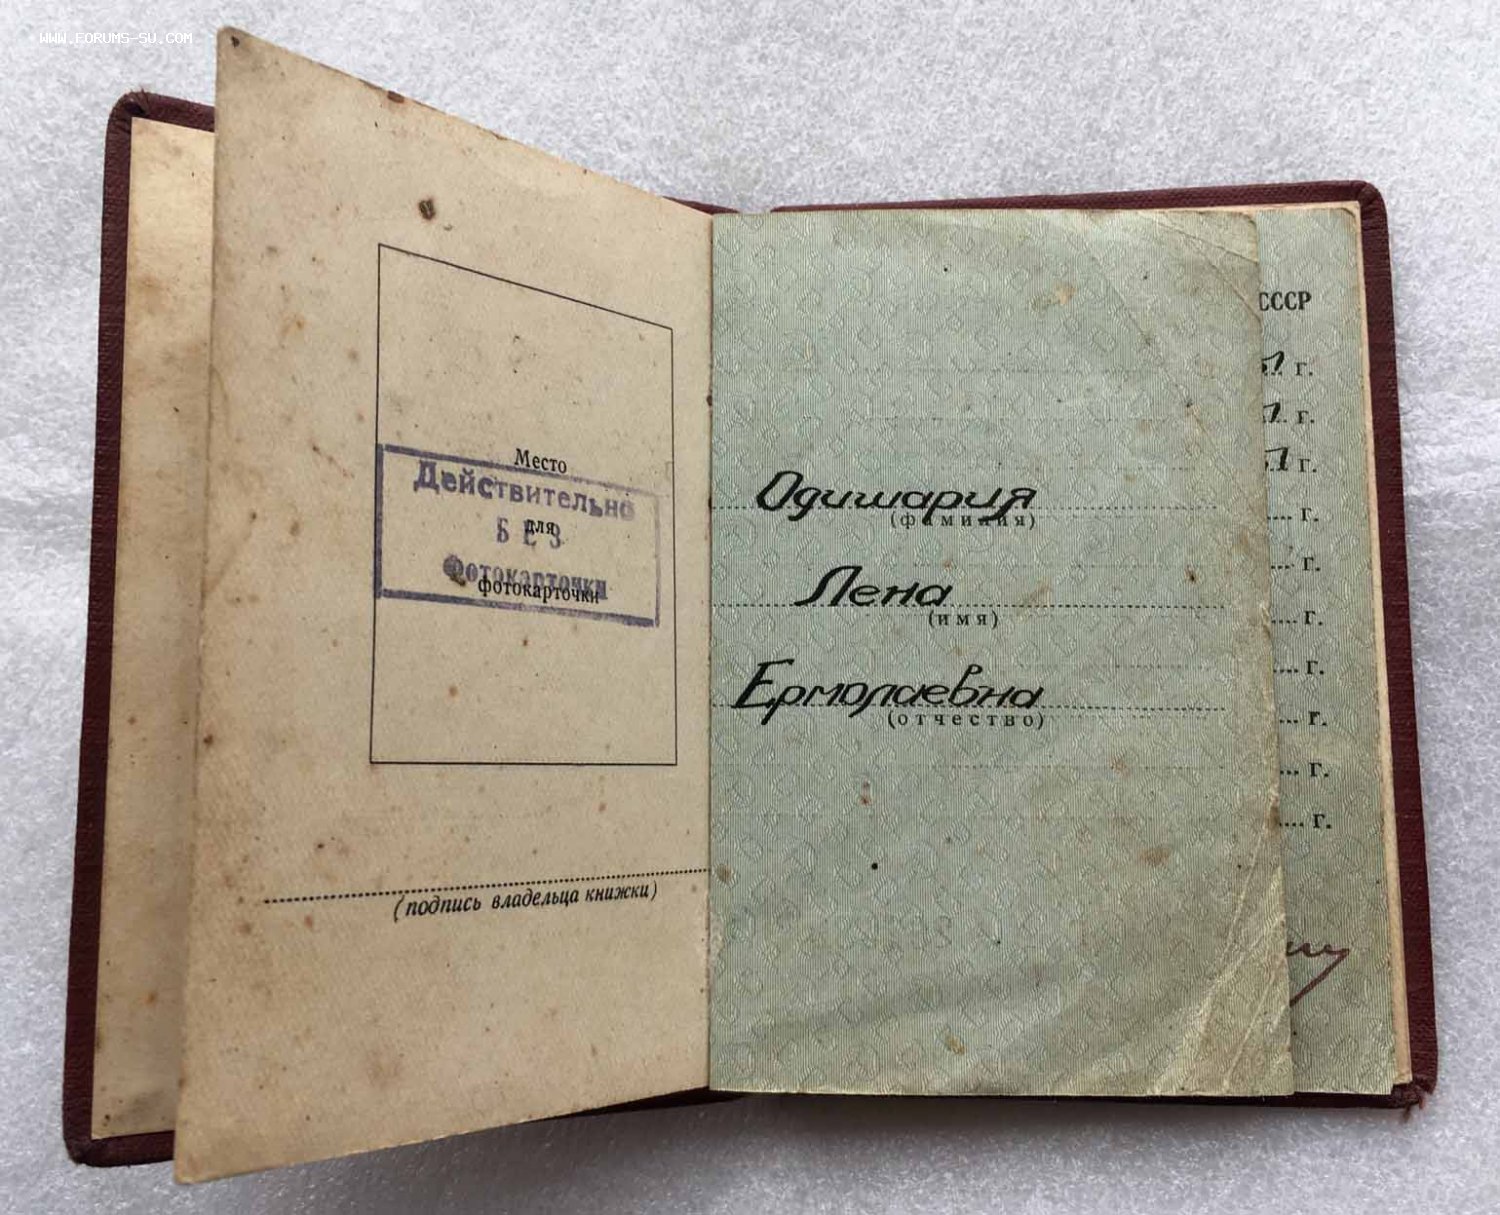 WWW.FORUMS-SU.COM
Место
Действительно
для
БЕЗ
Фотокарточки
фотокарточки
(подпись владельца книжки)
Одишария
(фамилия)
Лена
(имя)
Ермолаевна
(отчество)
СССР
г.
г.
г.
г.
г.
г.
г.
г.
г.
г.